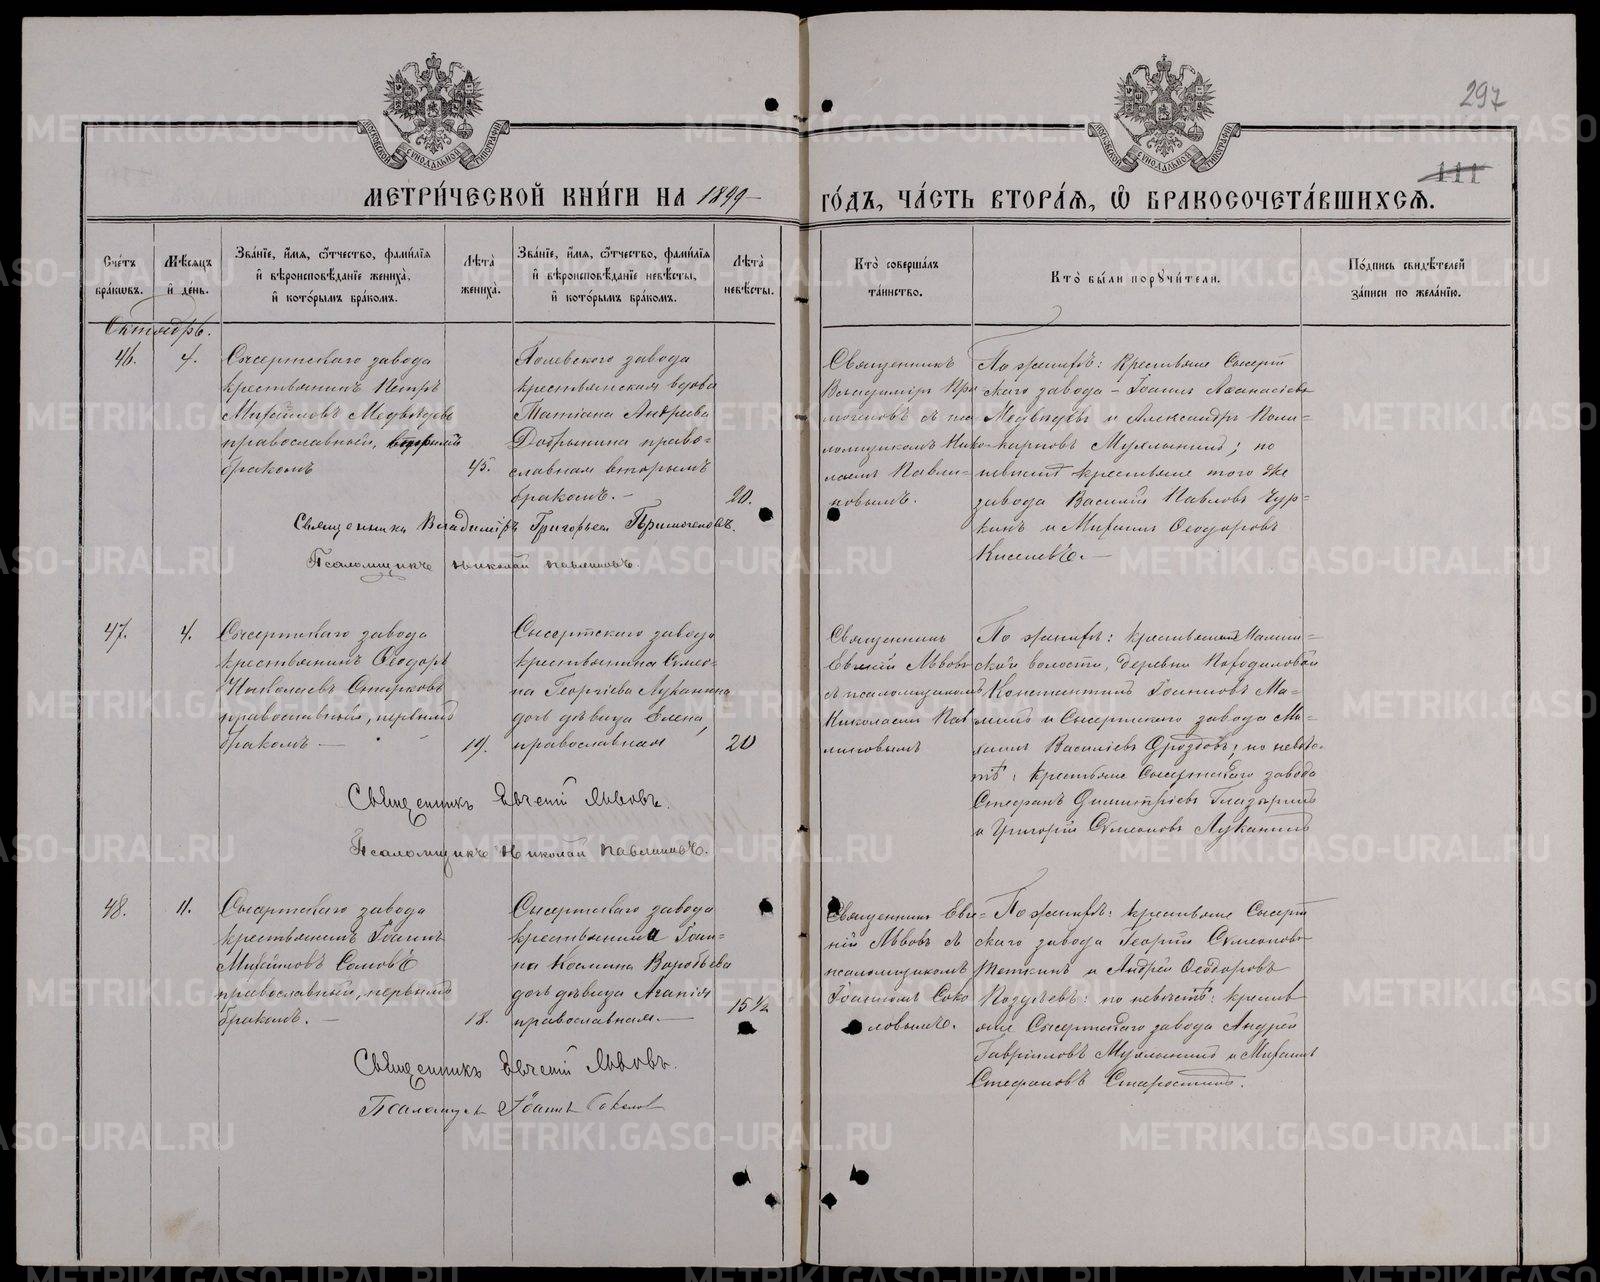 297
111
МОСКОВСКОЙ СУНОДАЛЬНОЙ ТИПОГРАФІИ
МОСКОВСКОЙ СУНОДАЛЬНОЙ ТИПОГРАФІИ
МЕТРИ́ЧЕСКОЙ КНИ́ГИ НА 1899 ГО́ДЪ, ЧА́СТЬ ВТОРА́Я, Ѡ БРАКОСОЧЕТА́ВШИХСЯ.
Сче́тъ бра́кѡвъ.
Мѣ́сяцъ и҆ де́нь.
Зва́нїе, и҆́мя, ѻ҆́тчество, фами́лїя и҆ вѣроисповѣ́данїе жениха̀, и҆ кото́рымъ бра́комъ.
Лѣта̀ жениха̀.
Зва́нїе, и҆́мя, ѻ҆́тчество, фами́лїя и҆ вѣроисповѣ́данїе невѣ́сты, и҆ кото́рымъ бра́комъ.
Лѣта̀ невѣ́сты.
Кто̀ соверша́лъ та́инство.
Кто̀ бы́ли порꙋчи́тели.
По́дпись свидѣ́телей за́писи по жела́нїю.
Октябрь.
46.
4.
Сысертскаго завода
крестьянинъ Петръ
Михайловъ Медвѣдевъ
православный, вторымъ
бракомъ
45.
Полевского завода
крестьянская вдова
Татіана Андреева
Добрынина право-
славная вторымъ
бракомъ. –
20.
Священникъ
Владимиръ При
моченовъ съ пса
ломщикомъ Нико-
лаемъ Павли-
новымъ.
По женихѣ: крестьяне Сысерт
скаго завода – Іоаннъ Аѳанасіевъ
Медвѣдевъ и Александръ Поли-
карповъ Мухлынинъ; по
невѣстѣ крестьяне того же
завода Василій Павловъ Чур-
кинъ и Михаилъ Ѳеодоровъ
Киселевъ. –
Священникъ Владиміръ Григорьевъ Примоченовъ.
Псаломщикъ Николай Павлиновъ.
47.
4.
Сысертскаго завода
крестьянинъ Ѳеодоръ
Николаевъ Старковъ
православный, первымъ
бракомъ –
19.
Сысертскаго завода
крестьянина Симео-
на Георгіева Луканина
дочь дѣвица Елена,
православная
20
Священникъ
Евгеній Львовъ
съ псаломщикомъ
Николаемъ Пав
линовымъ
По женихѣ: крестьяне
ской волости, деревни
Константинъ Іоанновъ Ма-
и Сысертскаго завода Ми-
хаилъ Василіевъ Дроздовъ; по невѣс-
тѣ: крестьяне Сысертскаго завода
Стефанъ Димитріевъ Глазыринъ
и Григорій Симеоновъ Луканинъ
Священникъ Евгеній Львовъ.
Псаломщикъ Николай Павлиновъ.
48.
11.
Сысертскаго завода
крестьянинъ Іоаннъ
Михайловъ Сомовъ
православный, первымъ
бракомъ. –
18.
Сысертскаго завода
крестьянина Іоан-
на Космина Воробьева
дочь дѣвица Агапія
православная. –
15 ½
Священникъ Евге-
ній Львовъ съ
псаломщикомъ
Іоанномъ Соко
ловымъ.
По женихѣ: крестьяне Сысерт
скаго завода Георгій Симеоновъ
Теткинъ и Андрей Ѳеодоровъ
по невѣстѣ: кресть
яне Сысертскаго завода Андрей
Гавріиловъ Мухлынинъ и Михаилъ
Стефановъ Старостинъ.
Священникъ Евгеній Львовъ.
Псаломщикъ Іоаннъ Соколовъ
METRIKI.GASO-URAL.RU